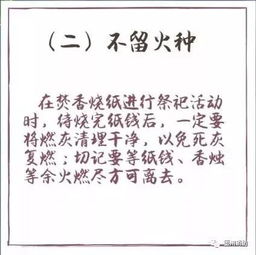 （二）不留火种
在焚香烧纸进行祭祀活动
时，待烧完纸钱后，一定要
将燃灰清理干净，以免死灰
复燃；切记要等纸钱、香烛
等余火燃尽方可离去。